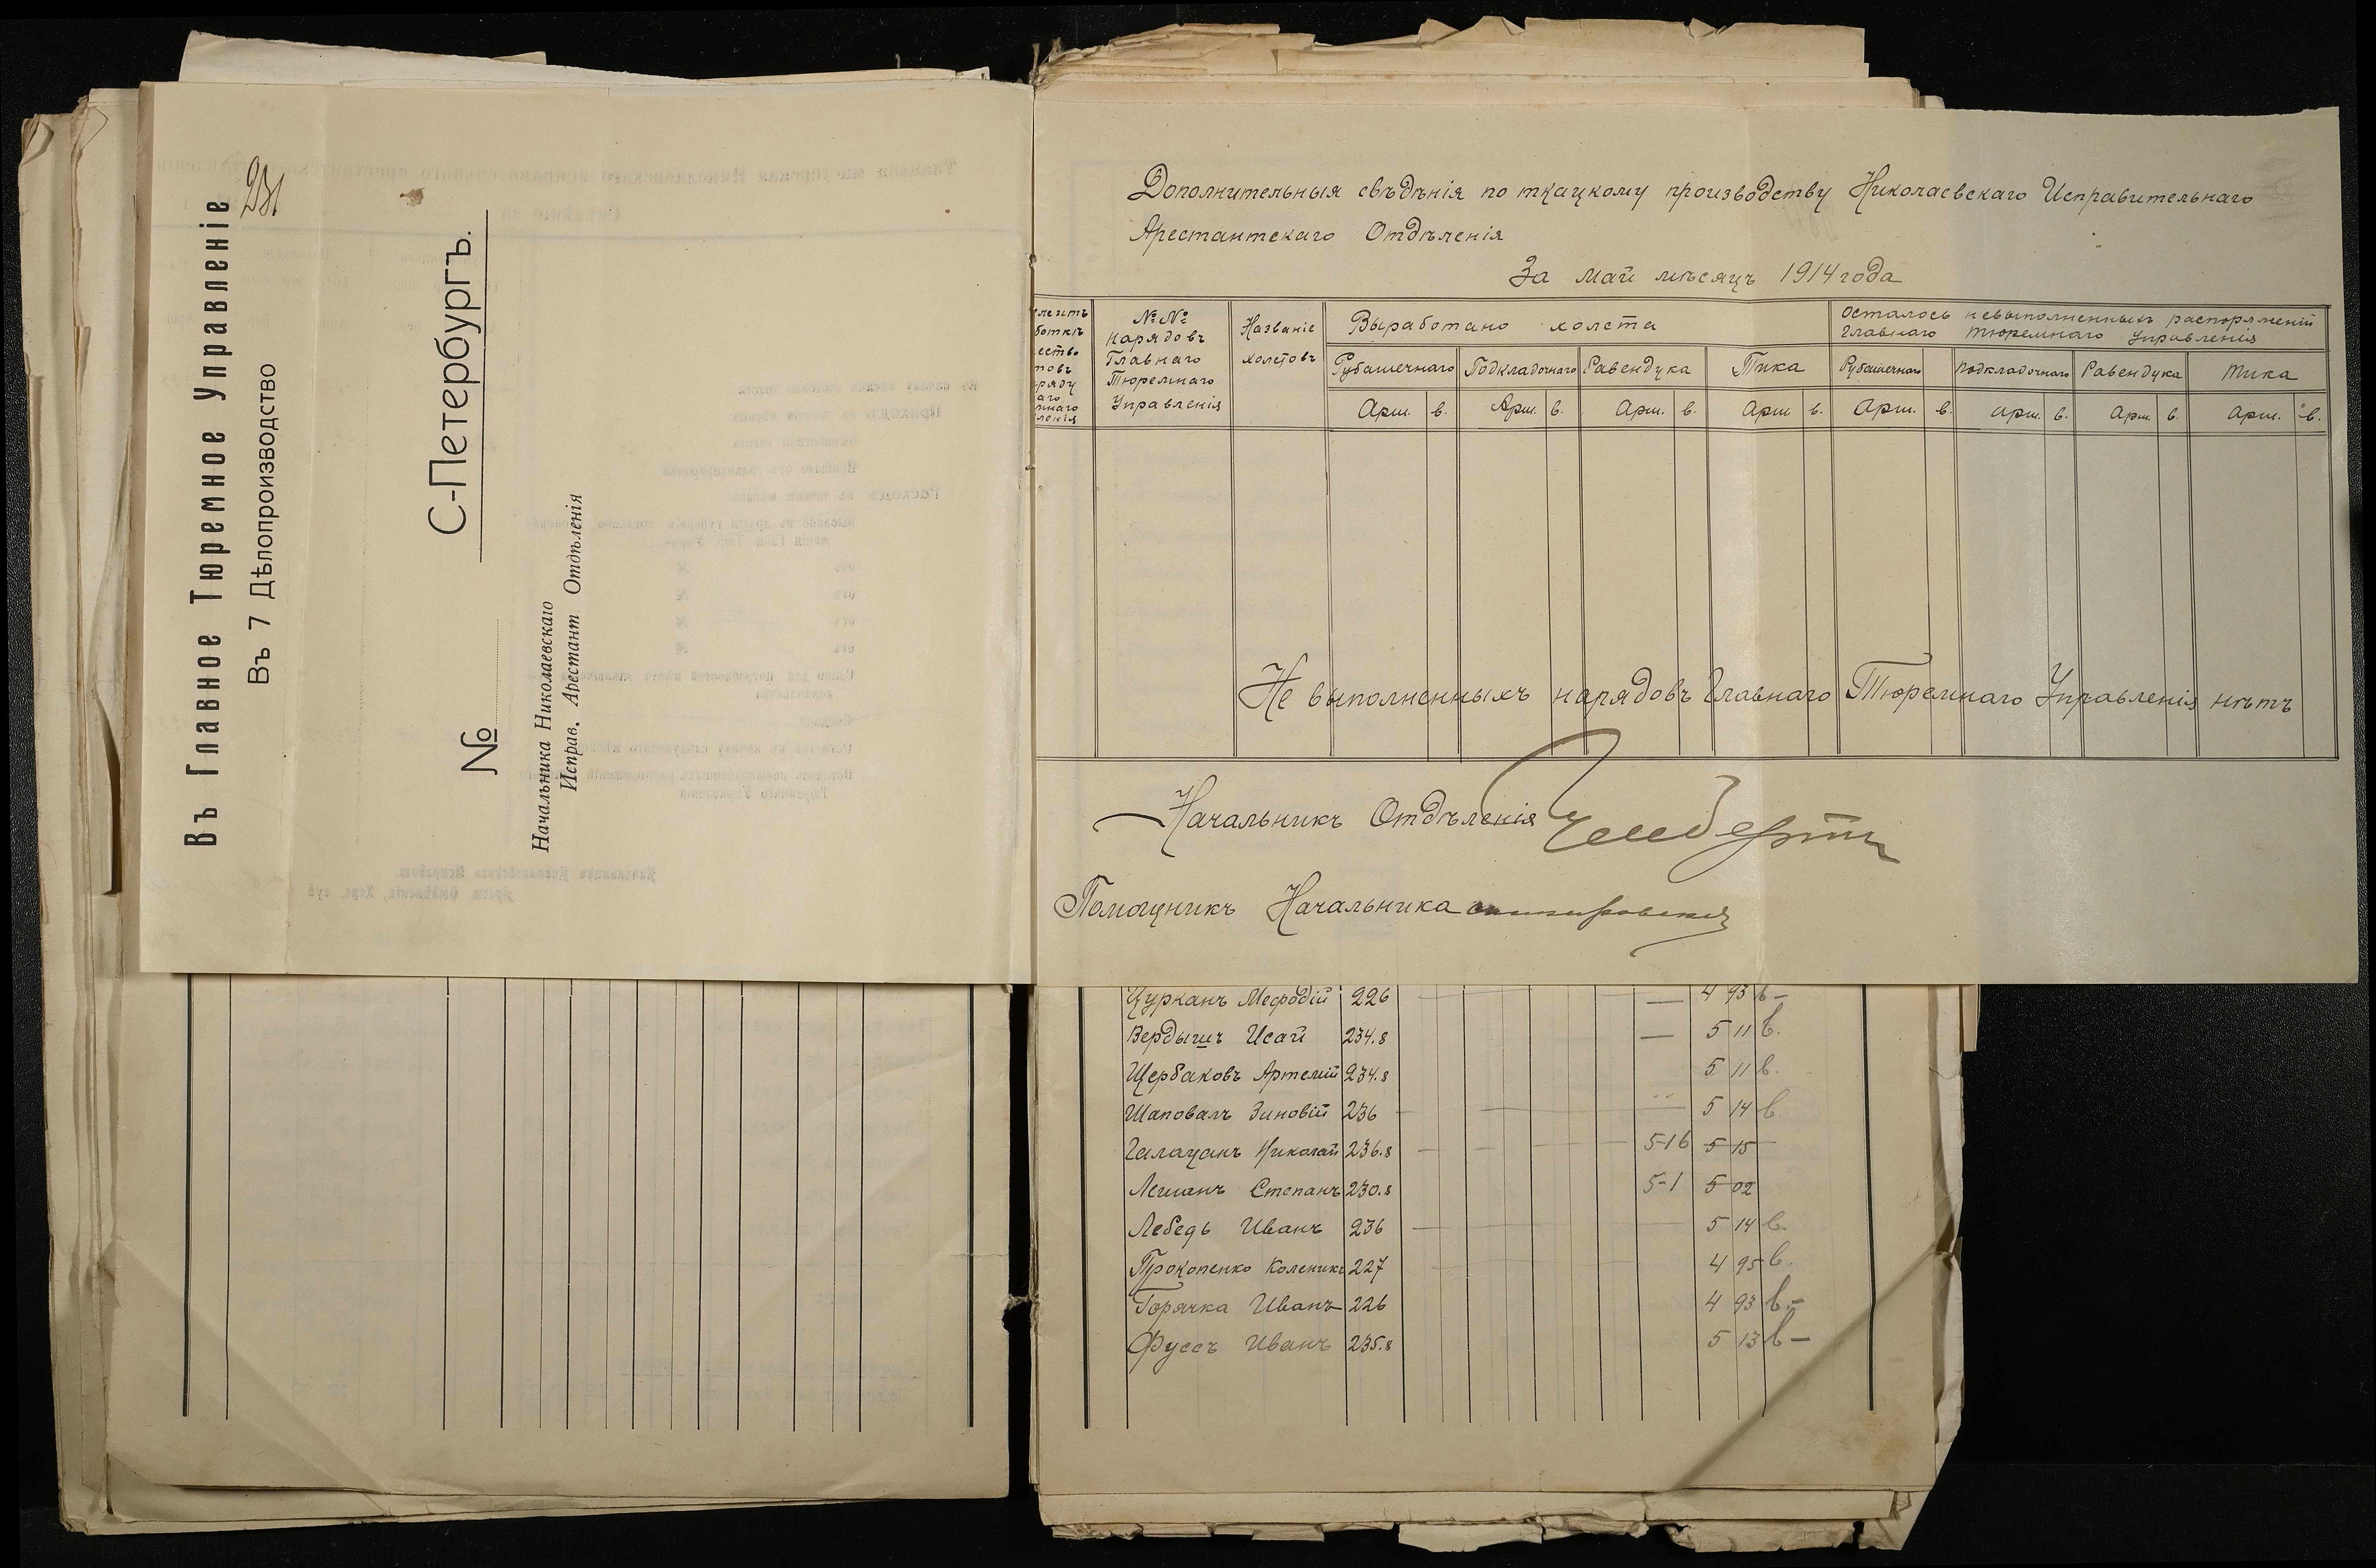 231
Въ Главное Тюремное Управленіе
Въ 7 Дѣлопроизводство
С-Петербургъ.
№
Начальника Николаевскаго
Исправ. Арестант Отдѣленія
Дополнительныя свѣдѣнія по ткацкому производству Николаевскаго Исправительнаго
Арестантскаго Отдѣленія
За май мѣсяцъ 1914 года
№ №
нарядовъ
Главнаго
Тюремнаго
Управленія
Названіе
холстовъ
Выработано холста
Осталось невыполненныхъ распоряженій
Главнаго Тюремнаго Управленія
Рубашечнаго Подкладочнаго Равендука Тика Рубашечнаго Подкладочнаго Равендука Тика
Арш. в. Арш. в. Арш. в. Арш в. Арш. в. Арш. в. Арш. в. Арш. в.
Не выполненныхъ нарядовъ Главнаго Тюремнаго Управленія нѣтъ
Начальникъ Отдѣленія
Помощникъ Начальника
Цурканъ Мефодій 226 — 4 93 в —
Вердышъ Исай 234.8 — 5 11 в.
Щербаковъ Артемій 234.8 5 11 в.
Шаповалъ Зиновій 236 5 14 в
Галацанъ Николай 236.8 5-16 5 15
Леманъ Степанъ 230.8 5-1 5 02
Лебедь Иванъ 236 5 14 в.
Прокопенко 227 4 95 в.
Горячка Иванъ 226 4 93 в. —
Фуссъ Иванъ 235.8 5 13 в —